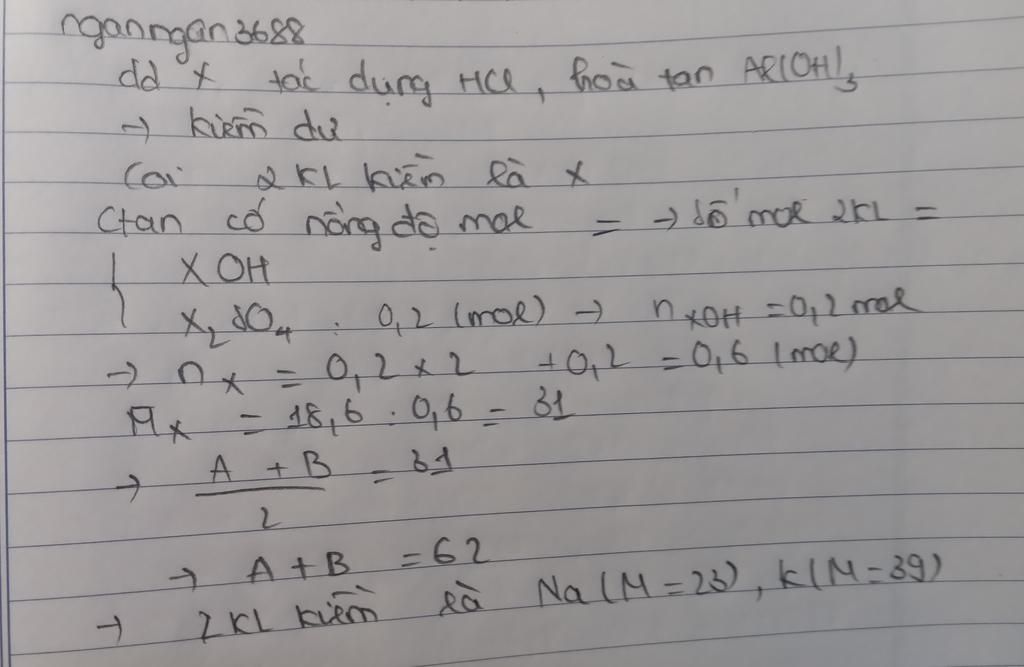 nganngan3688
dd X tác dụng HCl, hoà tan Al(OH)3
→ kiềm dư
Coi 2 KL kiềm là X
Ctan có nồng độ mol = → số mol 2KL =
{ XOH
X2SO4 : 0,2 (mol) → nXOH = 0,2 mol
→ nX = 0,2 x 2 + 0,2 = 0,6 (mol)
MX = 18,6 : 0,6 = 31
→ A + B / 2 = 31
→ A + B = 62
→ 2 KL kiềm là Na (M = 23), K (M = 39)